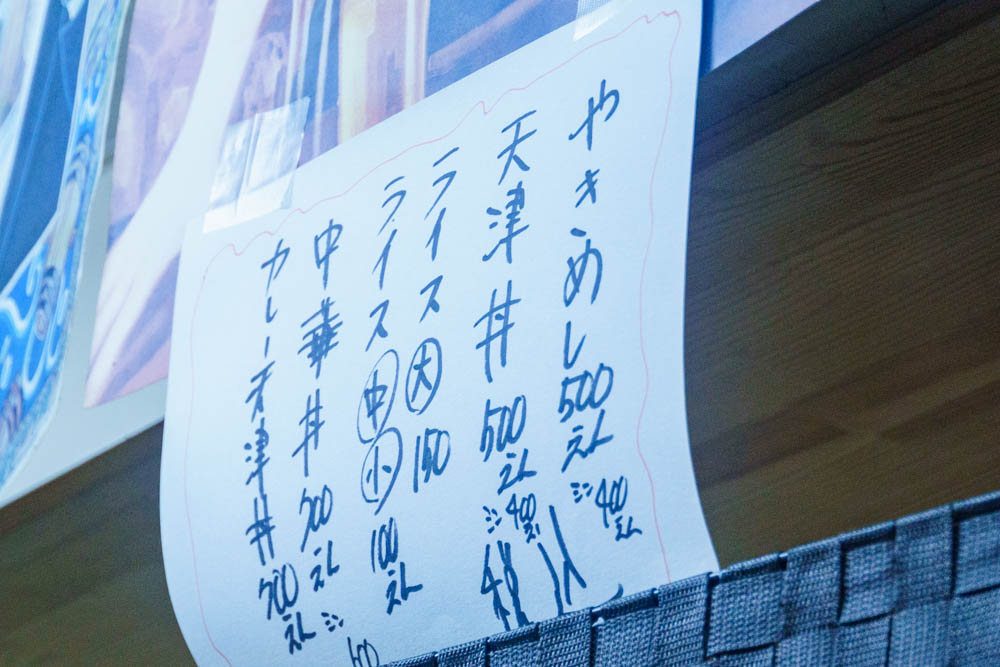 やきめし500えん ミニ400えん
天津丼 500えん ミニ400
ライス大 150
ライス中小 100えん
中華丼 700えん
カレー天津丼 700えん ミニ